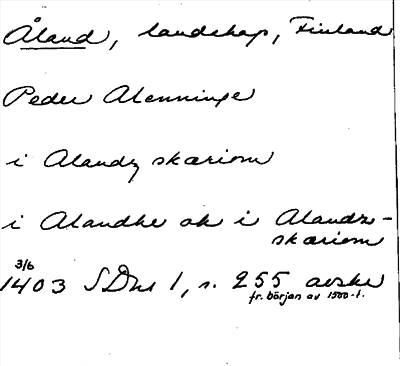 Åland, landskap, Finland
Peder Alenninge
i Alandz skæriom
i Alandhe ok i Alandz-
skæriom
3/6
1403 SDns 1, s. 255 avskr
fr. början av 1500-t.